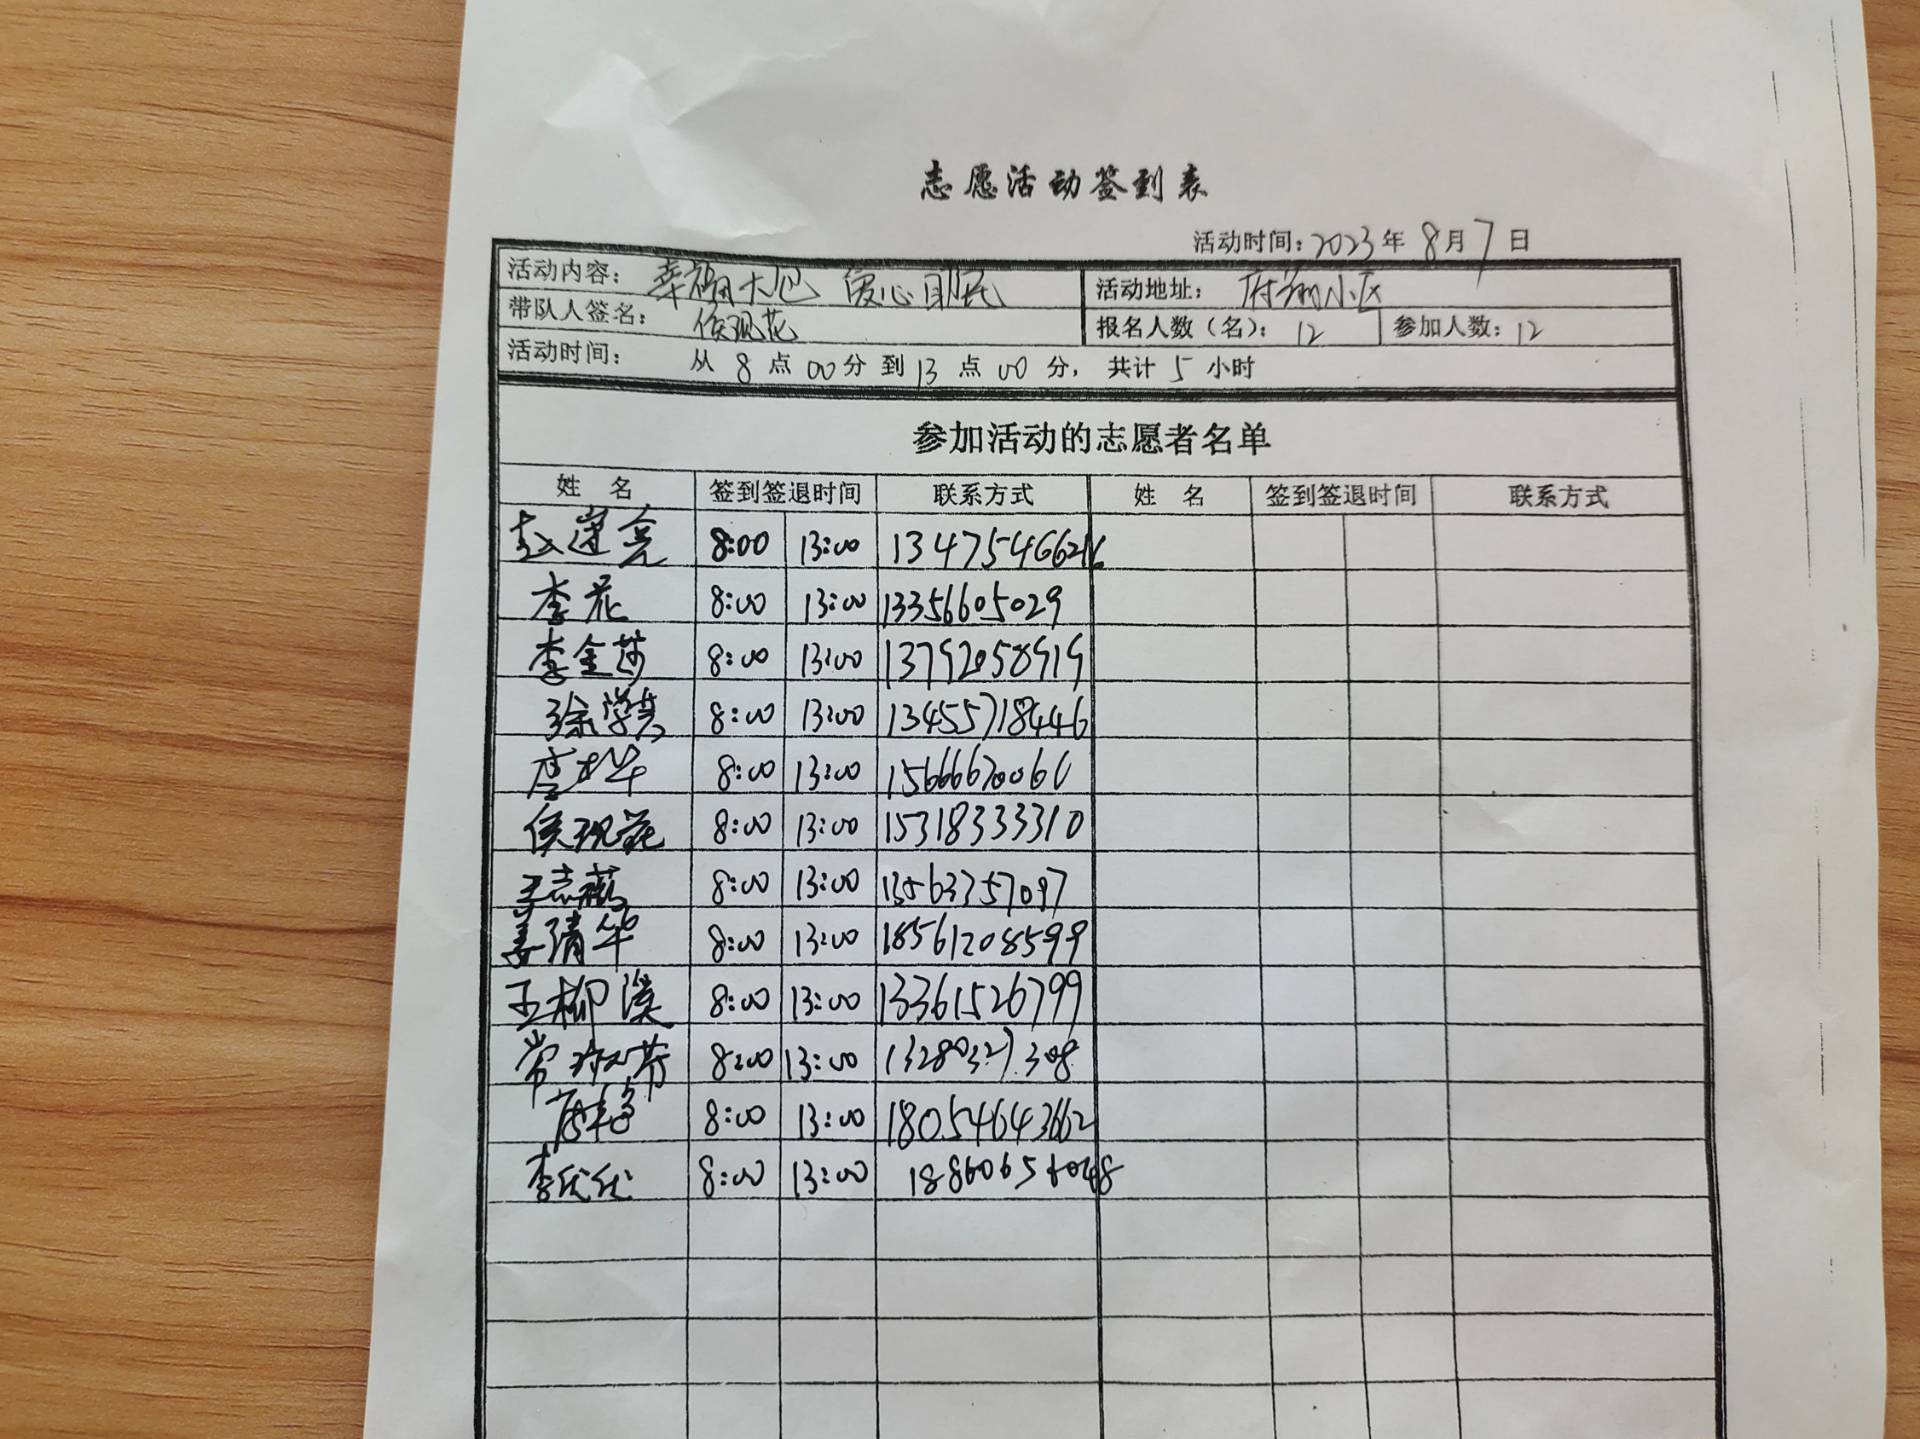 志愿活动签到表
活动时间：2023年8月7日
活动内容： 幸福大集 爱心助民 活动地址： 府翔小区
带队人签名： 侯现花 报名人数（名）：12 参加人数：12
活动时间： 从 8 点 00 分 到 13 点 00 分， 共计 5 小时
参加活动的志愿者名单
姓 名 签到签退时间 联系方式 姓 名 签到签退时间 联系方式
8:00 13:00
李花 8:00 13:00 13356605029
李金莎 8:00 13:00 13792058919
徐学英 8:00 13:00 13455718446
8:00 13:00
侯现花 8:00 13:00 15318333310
8:00 13:00 13563757097
姜清华 8:00 13:00 18561208599
王柳溪 8:00 13:00 13361526799
8:00 13:00
8:00 13:00 18054643662
李优优 8:00 13:00